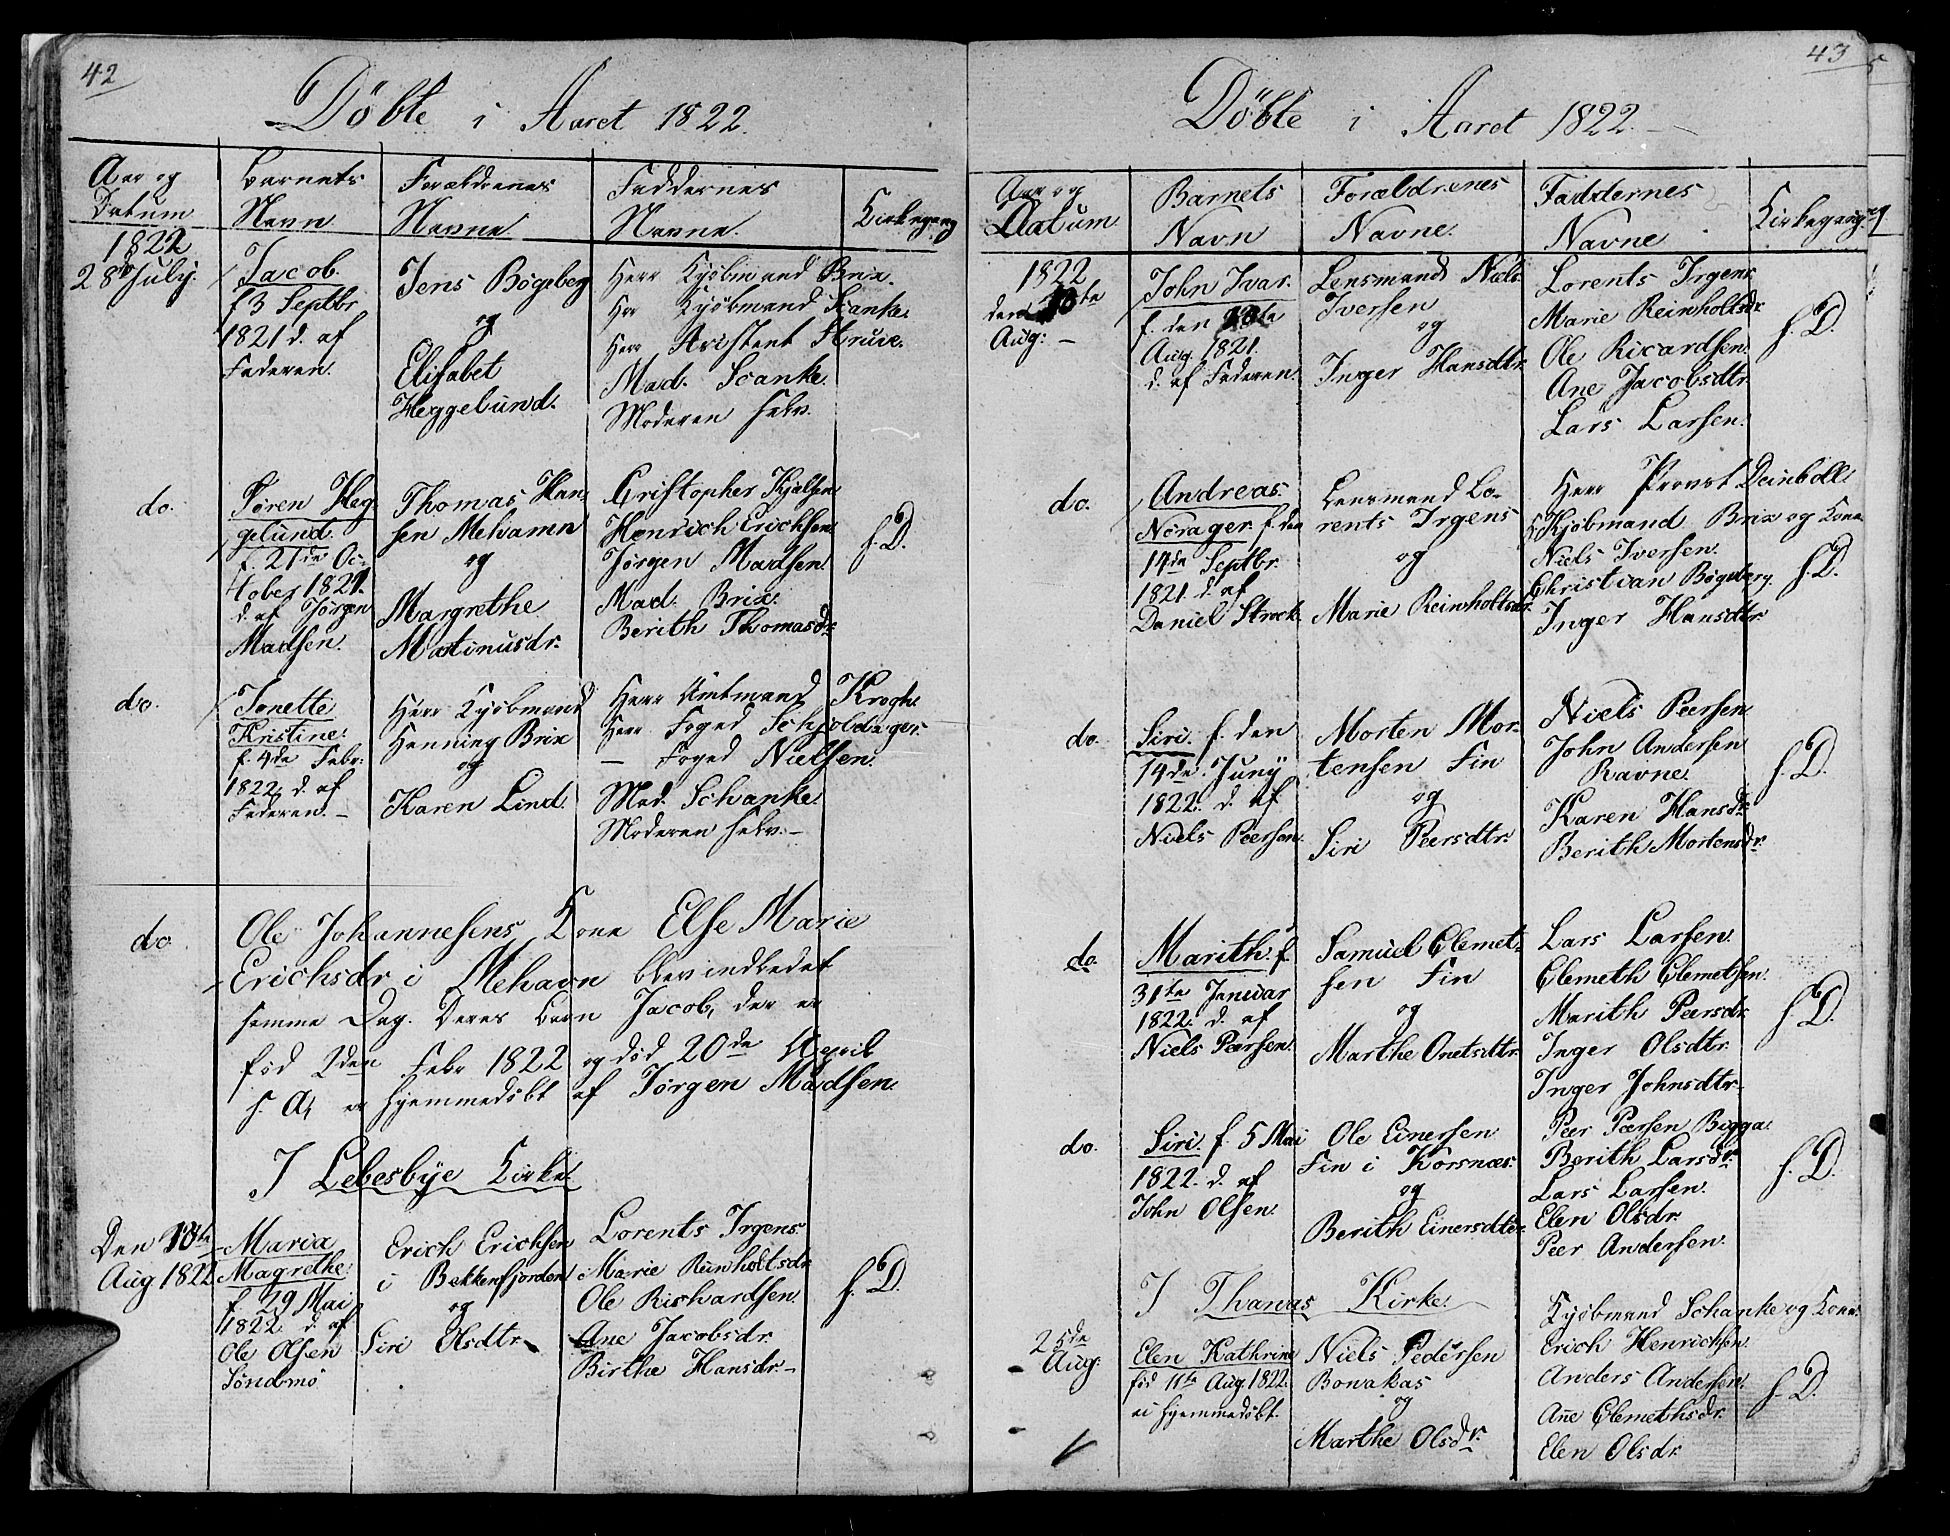 42
Döbte i Aaret 1822.
Aar og
Datum
Barnets
Navn
Forældrenes
Navne
Faddernes
Navne.
Kirkegang
1822
28de July.
Jacob.
f 3 Septbr
1821 d. af
Faderen.
Jens Bögeberg
og
Elisabet
Heggelund.
Herr Kjöbmand Brix.
Hrr Kjöbmand Scanke.
Herr Assistent Struve.
Mad. Scanke.
Moderen selv.
do.
Sören Heg
gelund.
f. 21de Oc-
tober 1821.
d. af Jörgen
Madsen.
Thomas Han
sen Mehamn
og
Margrethe
Matinusdr.
Cristopher Kjelsen
Henrich Erichsen
Jörgen Madsen.
Mad. Brix.
Berith Thomasdr.
s. D.
do.
Jonette
Kristine.
f. 4de Febr.
1822. d. af
Faderen. –
Herr Kjöbmand
Henning Brix
og
Karen Lind.
Herr Amtmand Krogh.
Herr Foged Schjoldager.
– Foged Nielsen.
Mad. Schanke.
Moderen selv. –
do
Ole Johannesens Kone Else Marie
Erichsdr i Mehavn blev indledet
samme Dag. Deres Barn Jacob, der er
föd 2den Febr 1822 og död 20de April
s. A, er hjemmedöbt af Jörgen Madsen.
I Lebesbye Kirke.
Den 18te
Aug 1822
Maria
Magrethe.
f. 29 Mai
1822 d. af
Ole Olsen
Söndmö
Erich Erichsen
i Bekkerfjorden
og
Siri Olsdtr.
Lorents Irgens.
Marie Reinholtsdr
Ole Richardsen.
Ane Jacobsdr.
Birthe Hansdr. –
s. D.
43
Döbte i Aaret 1822. –
Aar og
Datum.
Barnets
Navn
Forældrenes
Navne.
Faddernes
Navne
Kirkegang
1822
den 18te
Aug: –
John Ivar.
f. den 13te
Aug. 1821.
d. af Faderen.
Lensmand Niels
Iversen
og
Inger Hansdtr.
Lorents Irgens
Marie Reinholtsdr.
Ole Ricardsen.
Ane Jacobsdtr.
Lars Larsen.
s. D.
do.
Andreas
Norager. f. den
14de Septbr.
1821. d. af
Daniel Strock.
Lensmand Lo-
rents Irgens
og
Marie Reinholtsdr.
Herr Provst Deinboll.
Kjöbmand Brix og Kone
Niels Iversen.
Christian Bögeberg.
Inger Hansdtr.
s. D.
do.
Siri. f. den
14de Juny
1822. d. af
Niels Peersen.
Morten Mor-
tensen Fin
og
Siri Peersdtr.
Niels Peersen.
John Andersen
Ravne.
Karen Hansdr.
Berith Mortensdr.
s. D.
do.
Marith. f.
31te Januar
1822. d. af
Niels Peersen.
Samuel Clemet-
sen Fin
og
Marthe Onetsdtr.
Lars Larsen.
Clemeth Clemetsen.
Marith Peersdr.
Inger Olsdtr.
Inger Johnsdtr.
s. D.
do.
Siri. f. 5 Mai
1822. d. af
John Olsen.
Ole Einersen
Fin i Korsnæs.
og
Berith Einersdtr.
Peer Peersen Bigga.
Berith Larsdr.
Lars Larsen.
Elen Olsdr.
Peer Andersen.
s. D.
I Thanas Kirke.
25de
Aug.
Elen Kathrine
föd 11te Aug. 1822.
ei hjemmedöbt.
Niels Pedersen
Bonakas
og
Marthe Olsdr.
Kjöbmand Schanke og Kone.
Erich Henrichsen.
Anders Andersen.
Ane Clemethsdr.
Elen Olsdr.
s. D.